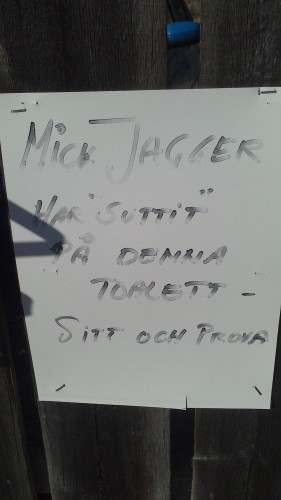 MICK JAGGER
HAR "SUTTIT"
PÅ DENNA
TOALETT -
SITT OCH PROVA